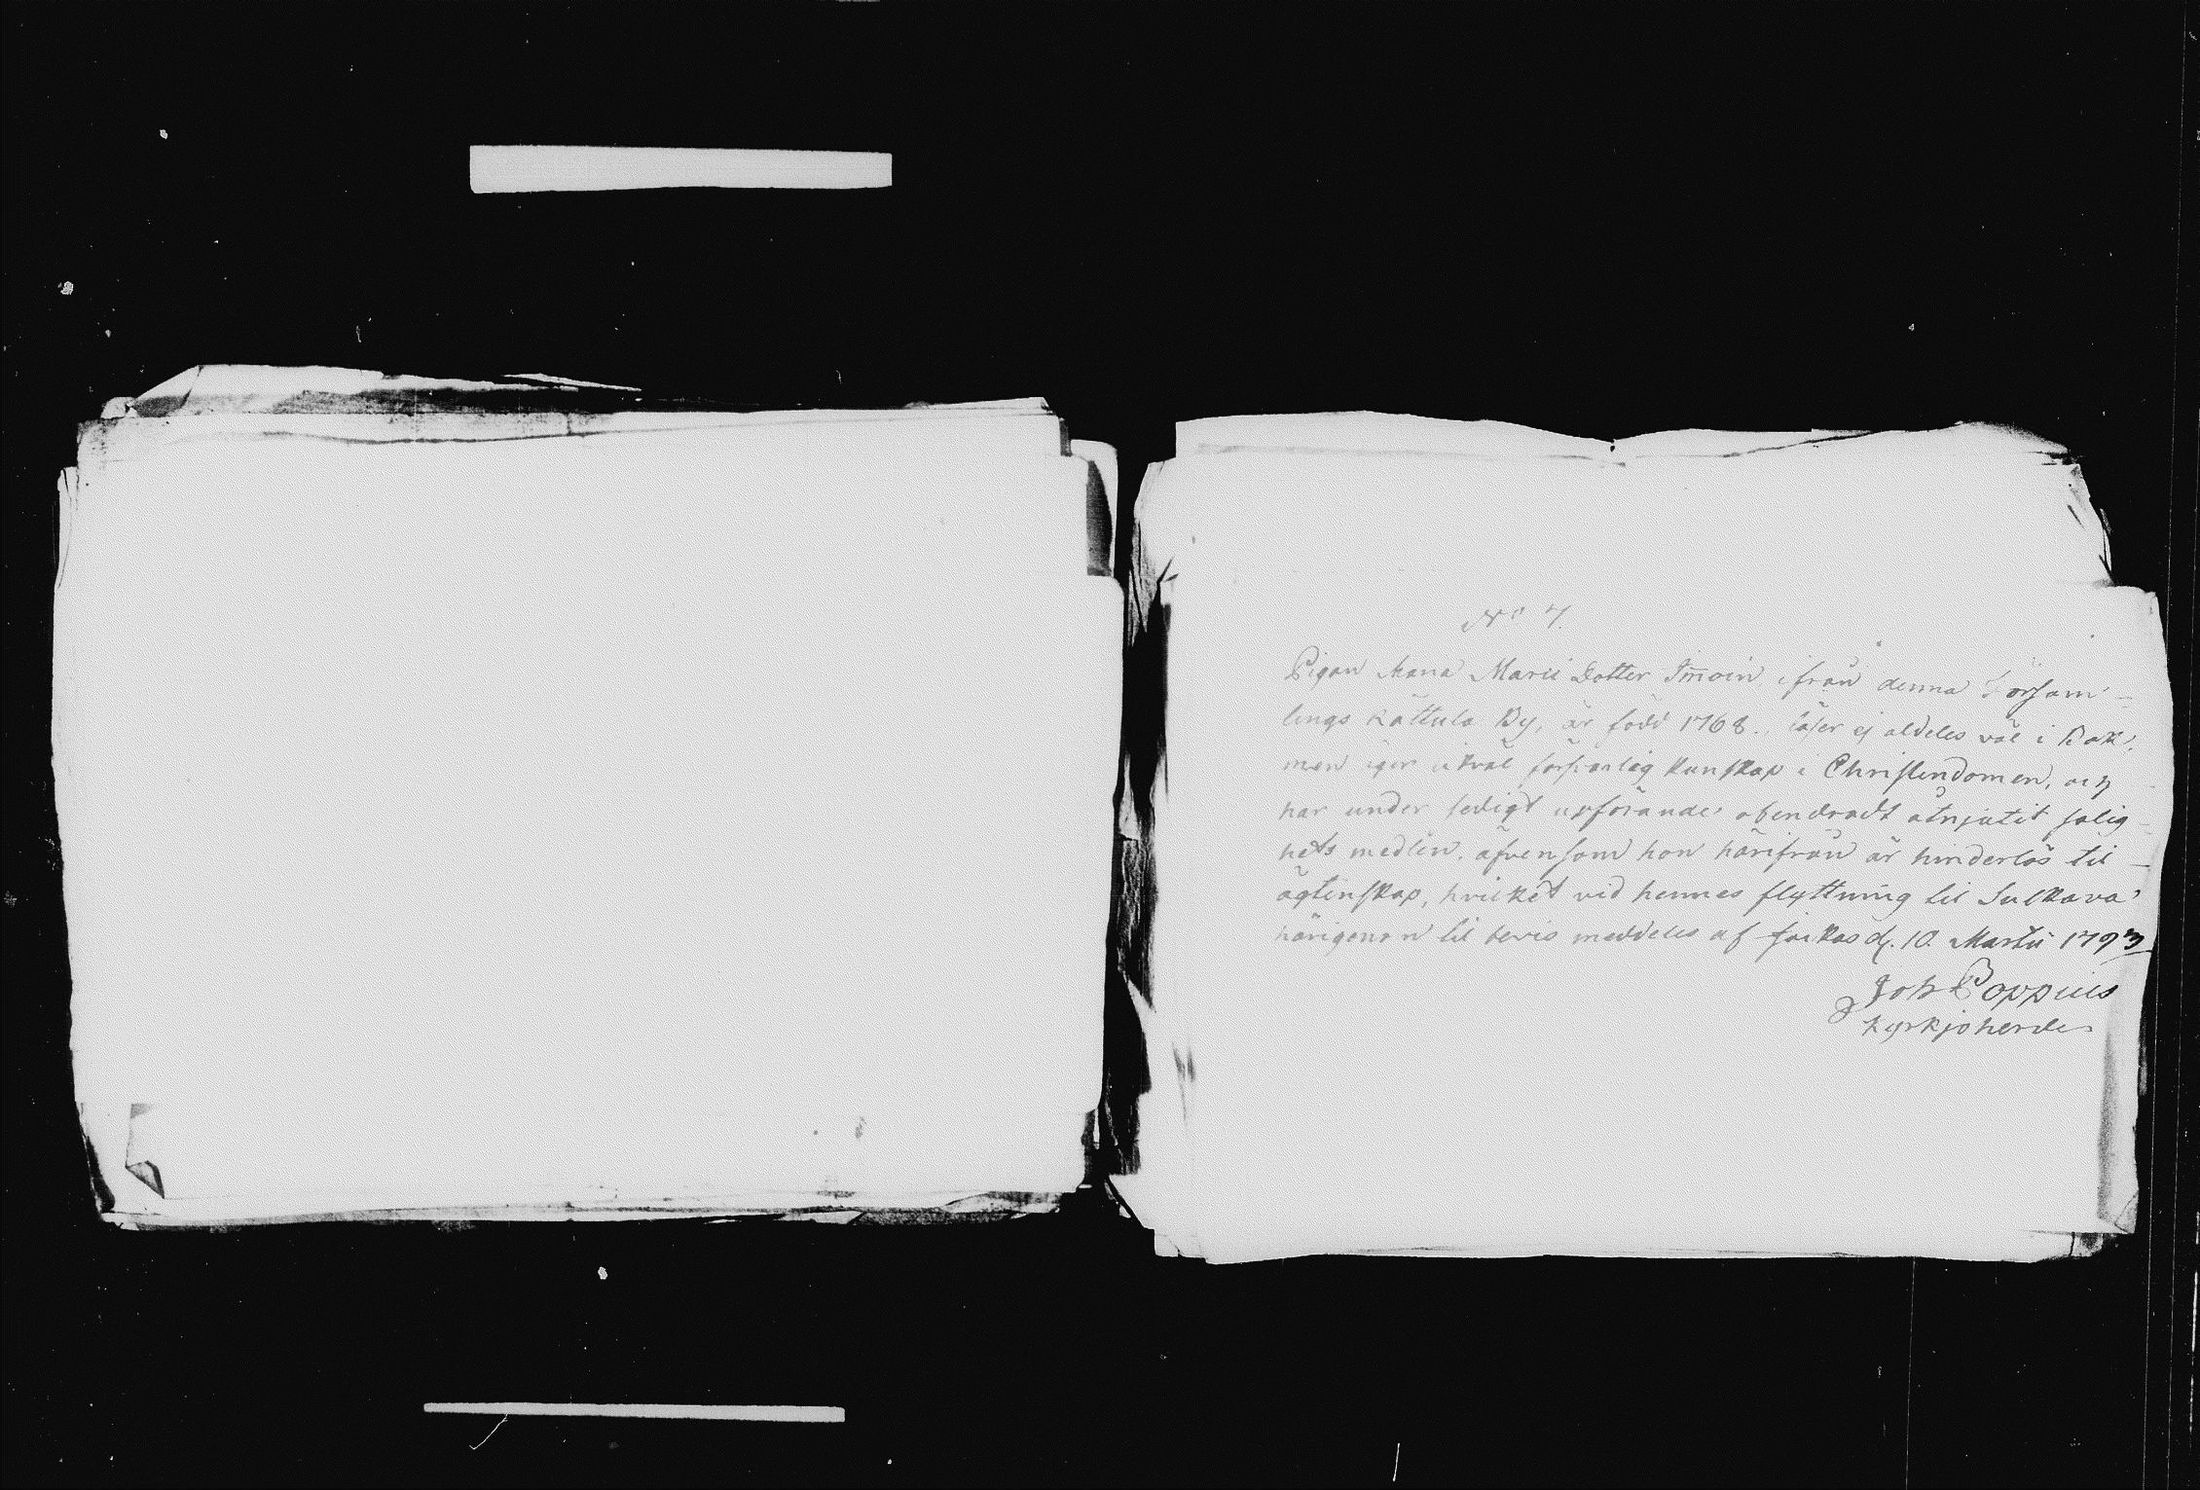 No 7.
Pigan Anna Marii Dotter Imoin ifrån denna Församl-
lings Kattula By, är född 1768., läser ej aldeles väl i Bok,
men äger likväl försvarlig kunskap i Christendomen, och
har under sedigt upförande obendradt åtnjutit salig-
hets medlen, äfvensom hon härifrån är hinderlös til
ägtenskap, hvilket vid hennes flyttning til Sulkava
härigenom til bevis meddeles af Joikas d. 10. Martii 1793
Joh Poppius
Kyrkjoherde